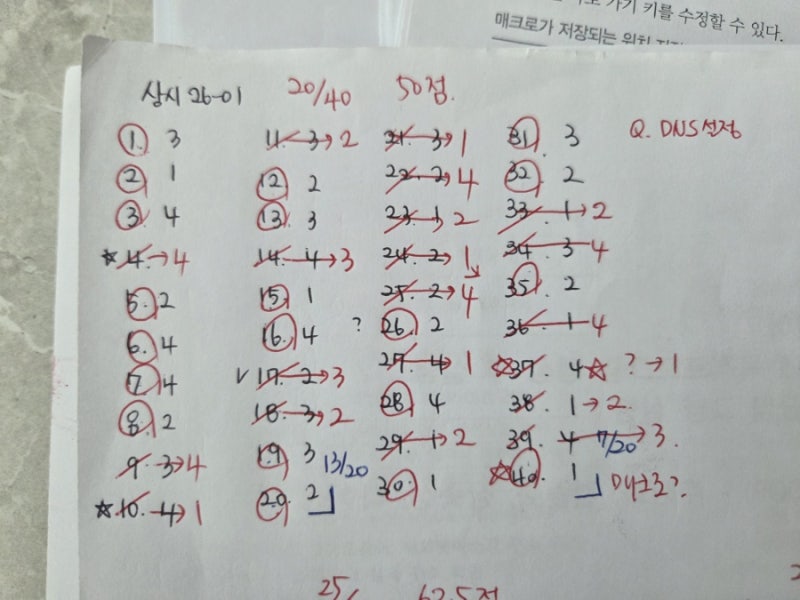 가기 키를 수정할 수 있다.
매크로가 저장되는 위치
상시 26-01 20/40 50점.
1. 3
2 1
3 4
☆ 4. → 4
5. 2
6. 4
7. 4
8. 2
9. 3 → 4
☆ 10. 4 → 1
11. 3 → 2
12 2
13. 3
14. 4 → 3
15 1
16. 4
✓ 17. 2 → 3
18. 3 → 2
19. 3 13/20
20. 2
21. 3 → 1
22. 2 → 4
23. 1 → 2
24. 2 → 1
25. 2 → 4
? 26. 2
27. 4 → 1
28. 4
29. 1 → 2
30. 1
31. 3
32. 2
33. 1 → 2
34. 3 4
35. 2
36. 1 4
☆ 37. 4 ☆ ? → 1
38. 1 → 2
39. 4 → 3. 7/20
☆ 40. 1 매크로?
Q. DNS 설정
25/ 62.5점